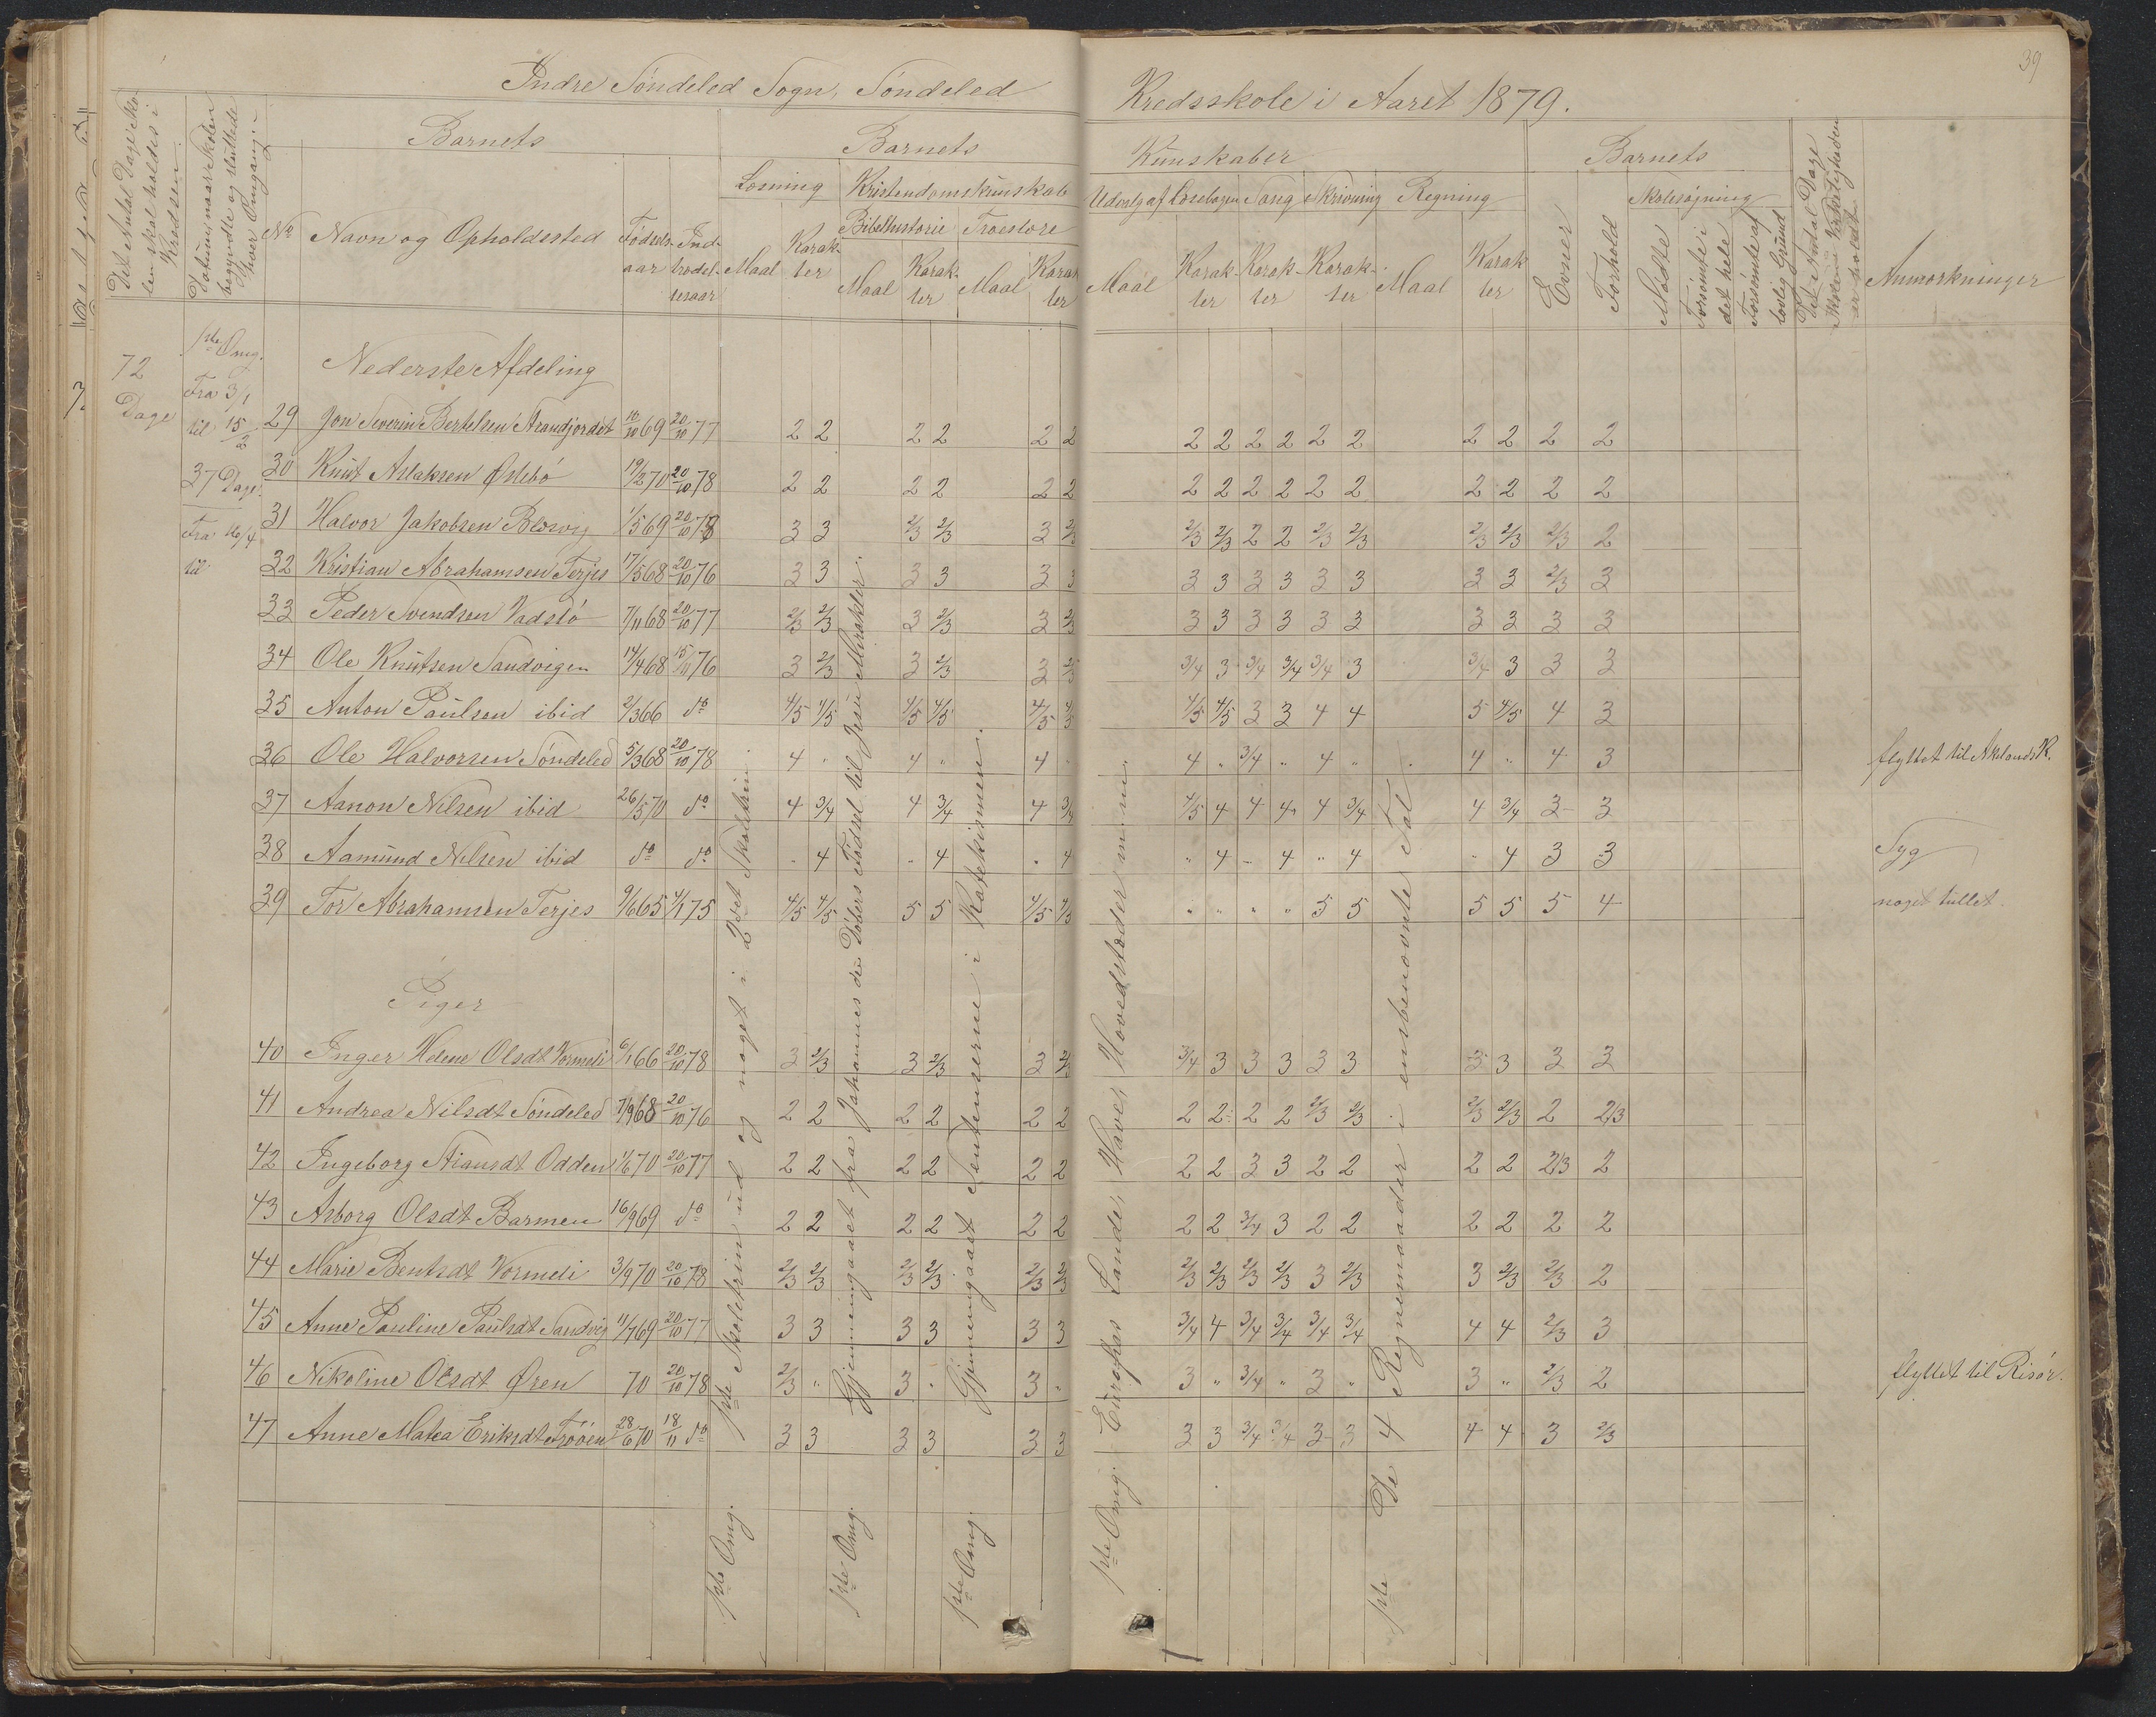 39
Indre Søndeled Sogn, Søndeled Kredsskole i Aaret 1879.
Det Antal Dage Skolen skal holdes i Kredsen
Datum naar Skolen begyndte og sluttede hver Omgang
No
Barnets
Navn og Opholdssted
Fødselsaar
Indtrædelsesaar
Barnets Kunskaber
Læsning
Maal
Karakter
Kristendomskunskab
Bibelhistorie
Maal
Karakter
Troeslære
Maal
Karakter
Udvalg af Læsebogen
Maal
Karakter
Sang
Karakter
Skrivning
Karakter
Regning
Maal
Karakter
Barnets
Evner
Forhold
Skolesøgning
Mødte
Forsømte i det hele
Forsømte af lovlig Grund
Det Antal Dage Skolen i Virkeligheden er holdt
Anmærkninger
72 Dage
1ste Omg.
Fra 3/1
til 15/2
37 Dage
Fra 16/4
til
Nederste Afdeling
29 Jon Severin Bertelsen Strandjordet 10/10 69 20/10 77 2 2 2 2 2 2 2 2 2 2 2 2 2 2 2 2
30 Knut Aslaksen Østebø 19/2 70 20/10 78 2 2 2 2 2 2 2 2 2 2 2 2 2 2 2 2
31 Halvor Jakobsen 1/5 69 20/10 78 3 3 2/3 2/3 3 2/3 2/3 2/3 2 2 2/3 2/3 2/3 2/3 2/3 2
32 Kristian Abrahamsen Terjes 17/5 68 20/10 76 3 3 3 3 3 3 3 3 3 3 3 3 3 3 2/3 3
33 Peder Svendsen Vadstø 7/11 68 20/10 77 2/3 2/3 3 2/3 3 2/3 3 3 3 3 3 3 3 3 3 3
34 Ole Knutsen Sandvigen 14/4 68 15/11 76 3 2/3 3 2/3 3 2/3 3/4 3 3/4 3/4 3/4 3 3/4 3 3 3
35 Anton Paulsen ibid 2/3 66 do 4/5 4/5 4/5 4/5 4/5 4/5 4/5 4/5 3 3 4 4 5 4/5 4 3
36 Ole Halvorsen Søndeled 5/3 68 20/10 78 4 " 4 " 4 " 4 " 3/4 " 4 " 4 " 4 3 flyttet til Aklands K.
37 Aanon Nilsen ibid 26/5 70 do 4 3/4 4 3/4 4 3/4 4/5 4 4 4 4 3/4 4 3/4 3 3
38 Aamund Nilsen ibid do do " 4 " 4 " 4 " 4 " 4 " 4 " 4 3 3 Syg
39 Tor Abrahamsen Terjes 9/6 65 4/1 75 4/5 4/5 5 5 4/5 4/5 " " " " 5 5 5 5 5 4 noget tullet.
Piger
40 Inger Helene Olsdt Vormeli 6/1 66 20/10 78 3 2/3 3 2/3 3 2/3 3/4 3 3 3 3 3 3 3 3 3
41 Andrea Nilsdt Søndeled 7/9 68 20/10 76 2 2 2 2 2 2 2 2 2 2 2/3 2/3 2/3 2/3 2 2/3
42 Ingeborg Stiansdt Odden 1/6 70 20/10 77 2 2 2 2 2 2 2 2 3 3 2 2 2 2 2/3 2
43 Asborg Olsdt Barmen 16/9 69 do 2 2 2 2 2 2 2 2 3/4 3 2 2 2 2 2 2
44 Marie Bentsdt Vormeli 3/9 70 20/10 78 2/3 2/3 2/3 2/3 2/3 2/3 2/3 2/3 2/3 2/3 3 2/3 3 2/3 2/3 2
45 Anne Pauline Paulsdt Sandvig 11/7 69 20/10 77 3 3 3 3 3 3 3/4 4 3/4 3/4 3/4 3/4 4 4 2/3 3
46 Nikoline Olsdt Øren 70 20/10 78 2/3 " 3 " 3 " 3 " 3/4 " 3 " 3 " 2/3 2 flyttet til Risør.
47 Anne Matea Eriksdt Trøøen 28/6 70 18/11 do 3 3 3 3 3 3 3 3 3/4 3/4 3 3 4 4 3 2/3
1ste Omg. 1ste Skoletrin ud og noget i 2det Skoletrin.
1ste Omg. Gjennemgaaet fra Johannes den Døbers Fødsel til Jesu Mirakler.
1ste Omg. Gjennemgaaet Sentenserne i Katekismen.
1ste Omg. Europas Lande, Have, Hovedstæder m. m.
1ste De 4 Regnemaader i ensbenævnte Tal